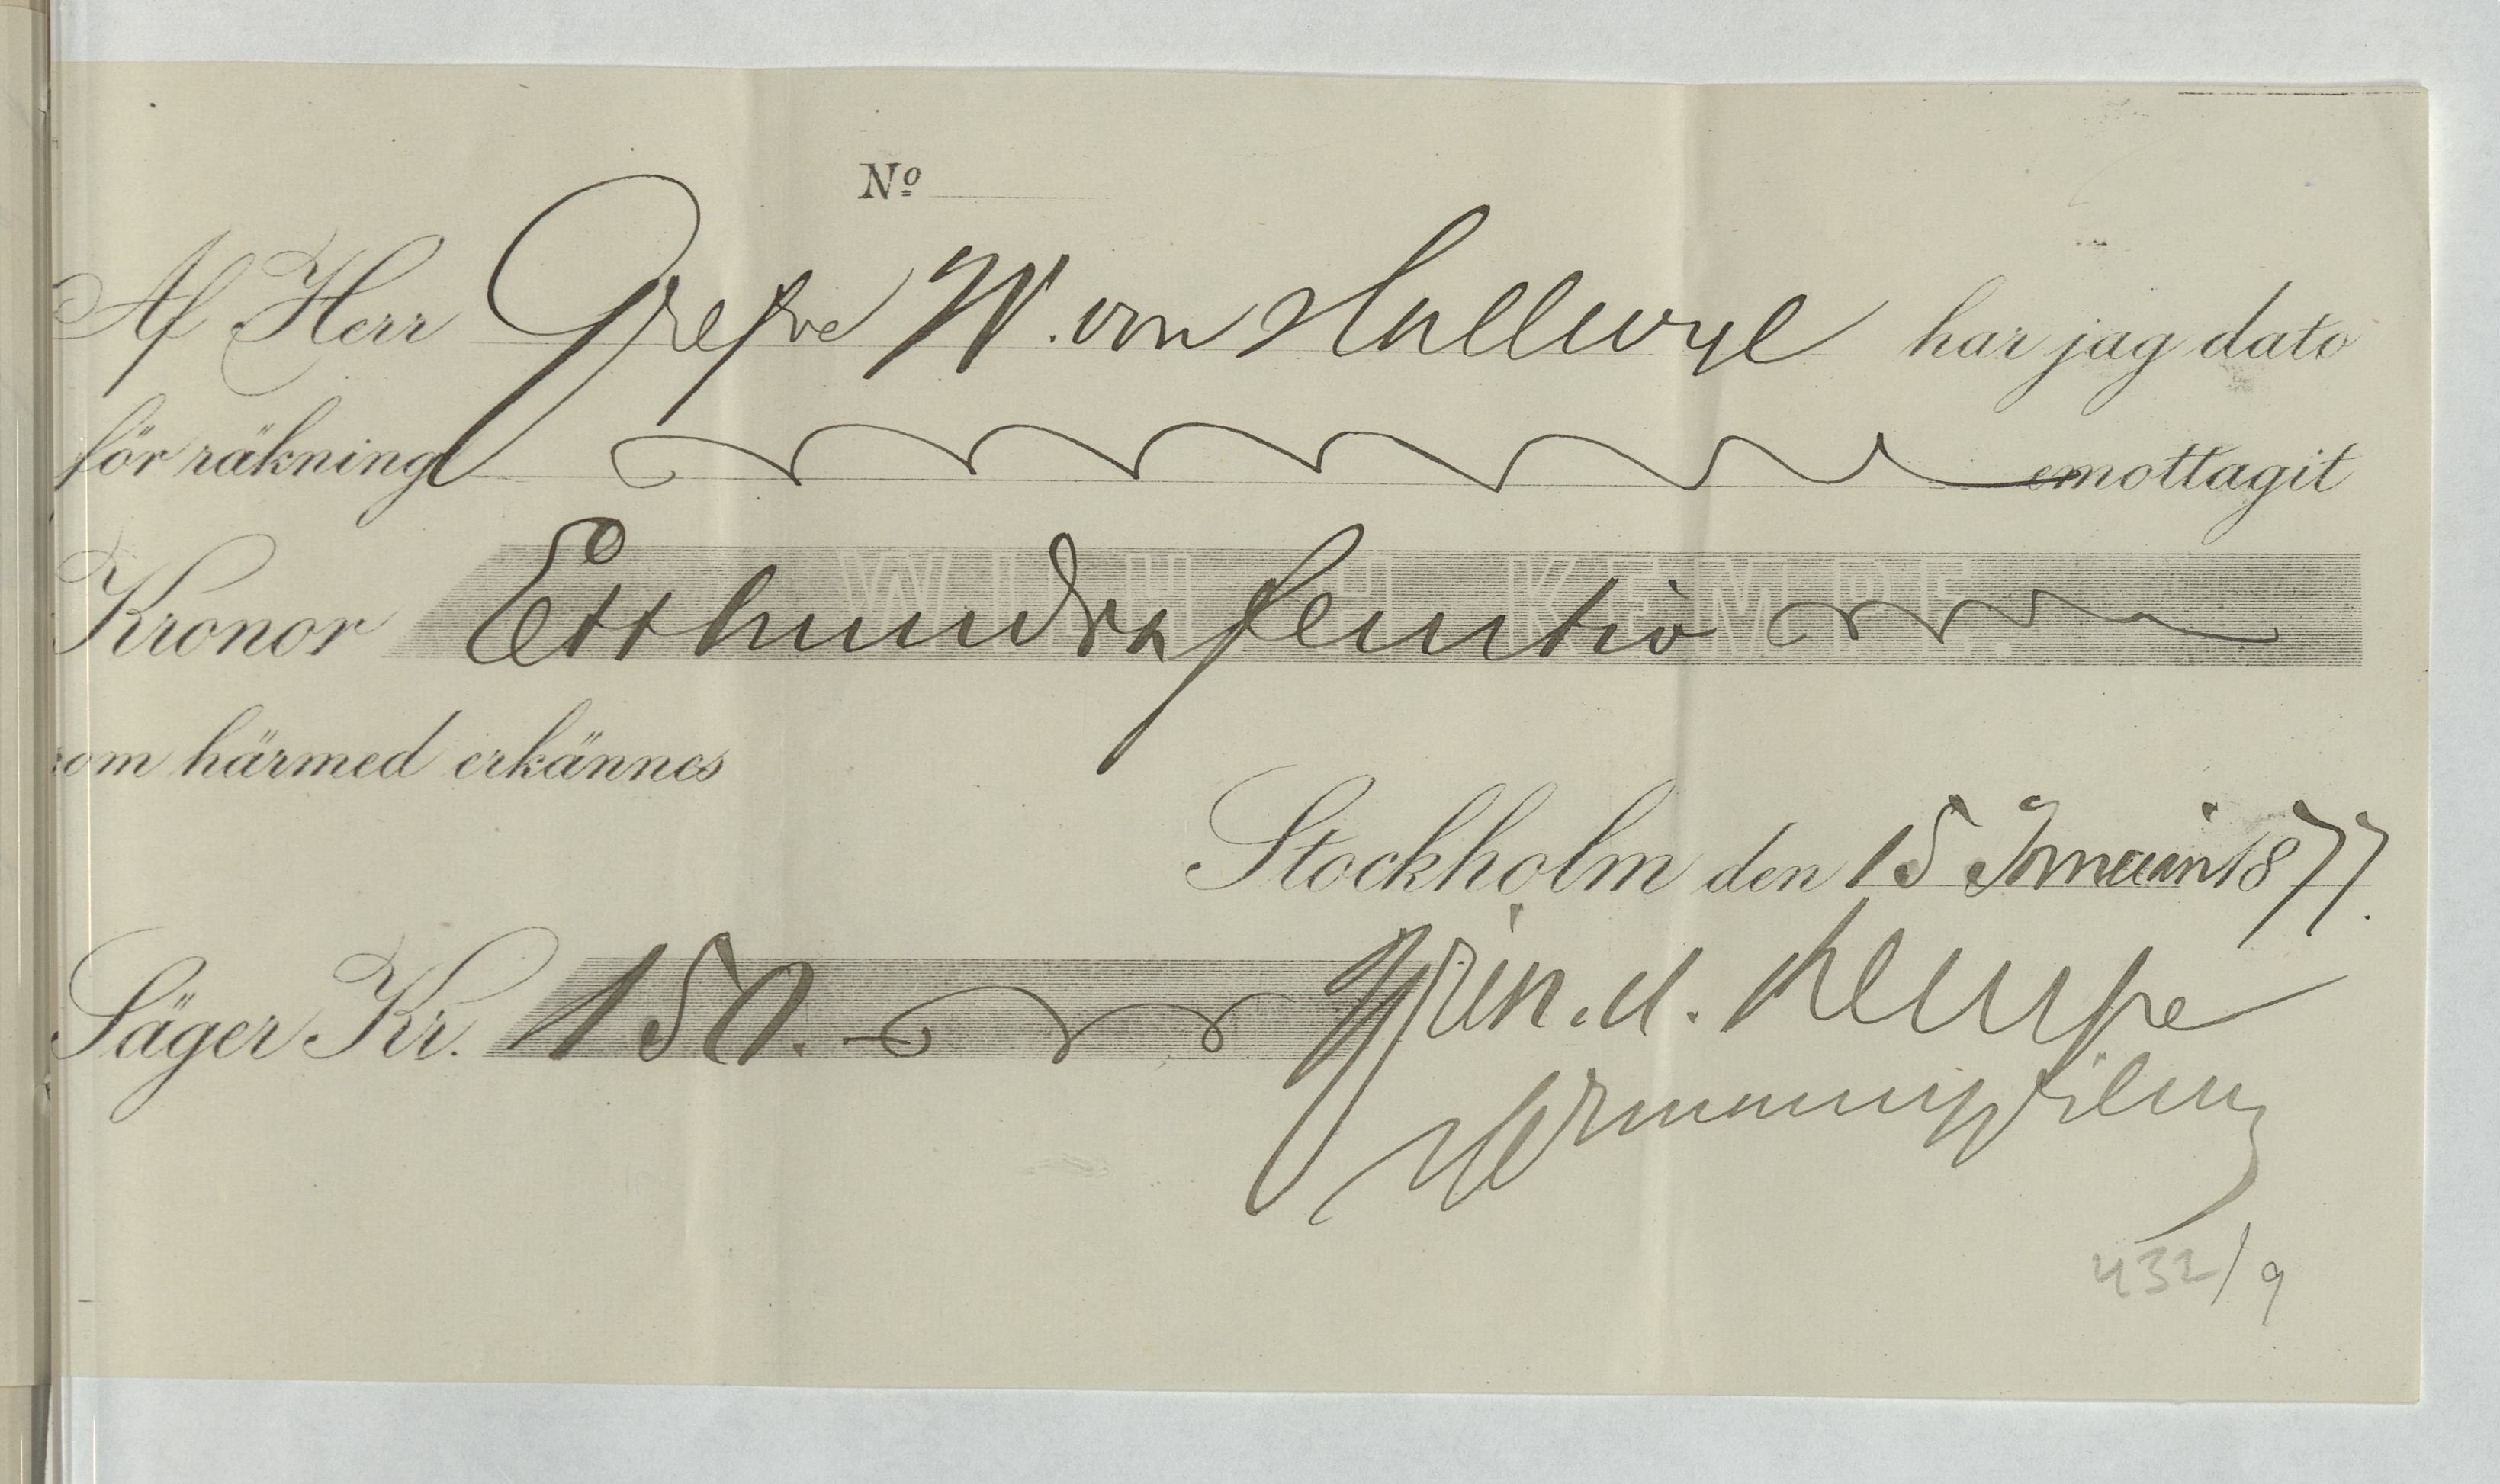 Nº
Af Herr Grefve W. von Hallwyl har jag dato
för räkning emottagit
WILH. H. KEMPE.
Kronor Etthundrafemtio
som härmed erkännes
Stockholm den 15 Januari 1877.
Säger Kr. 150.-
H. Kempe
432/9